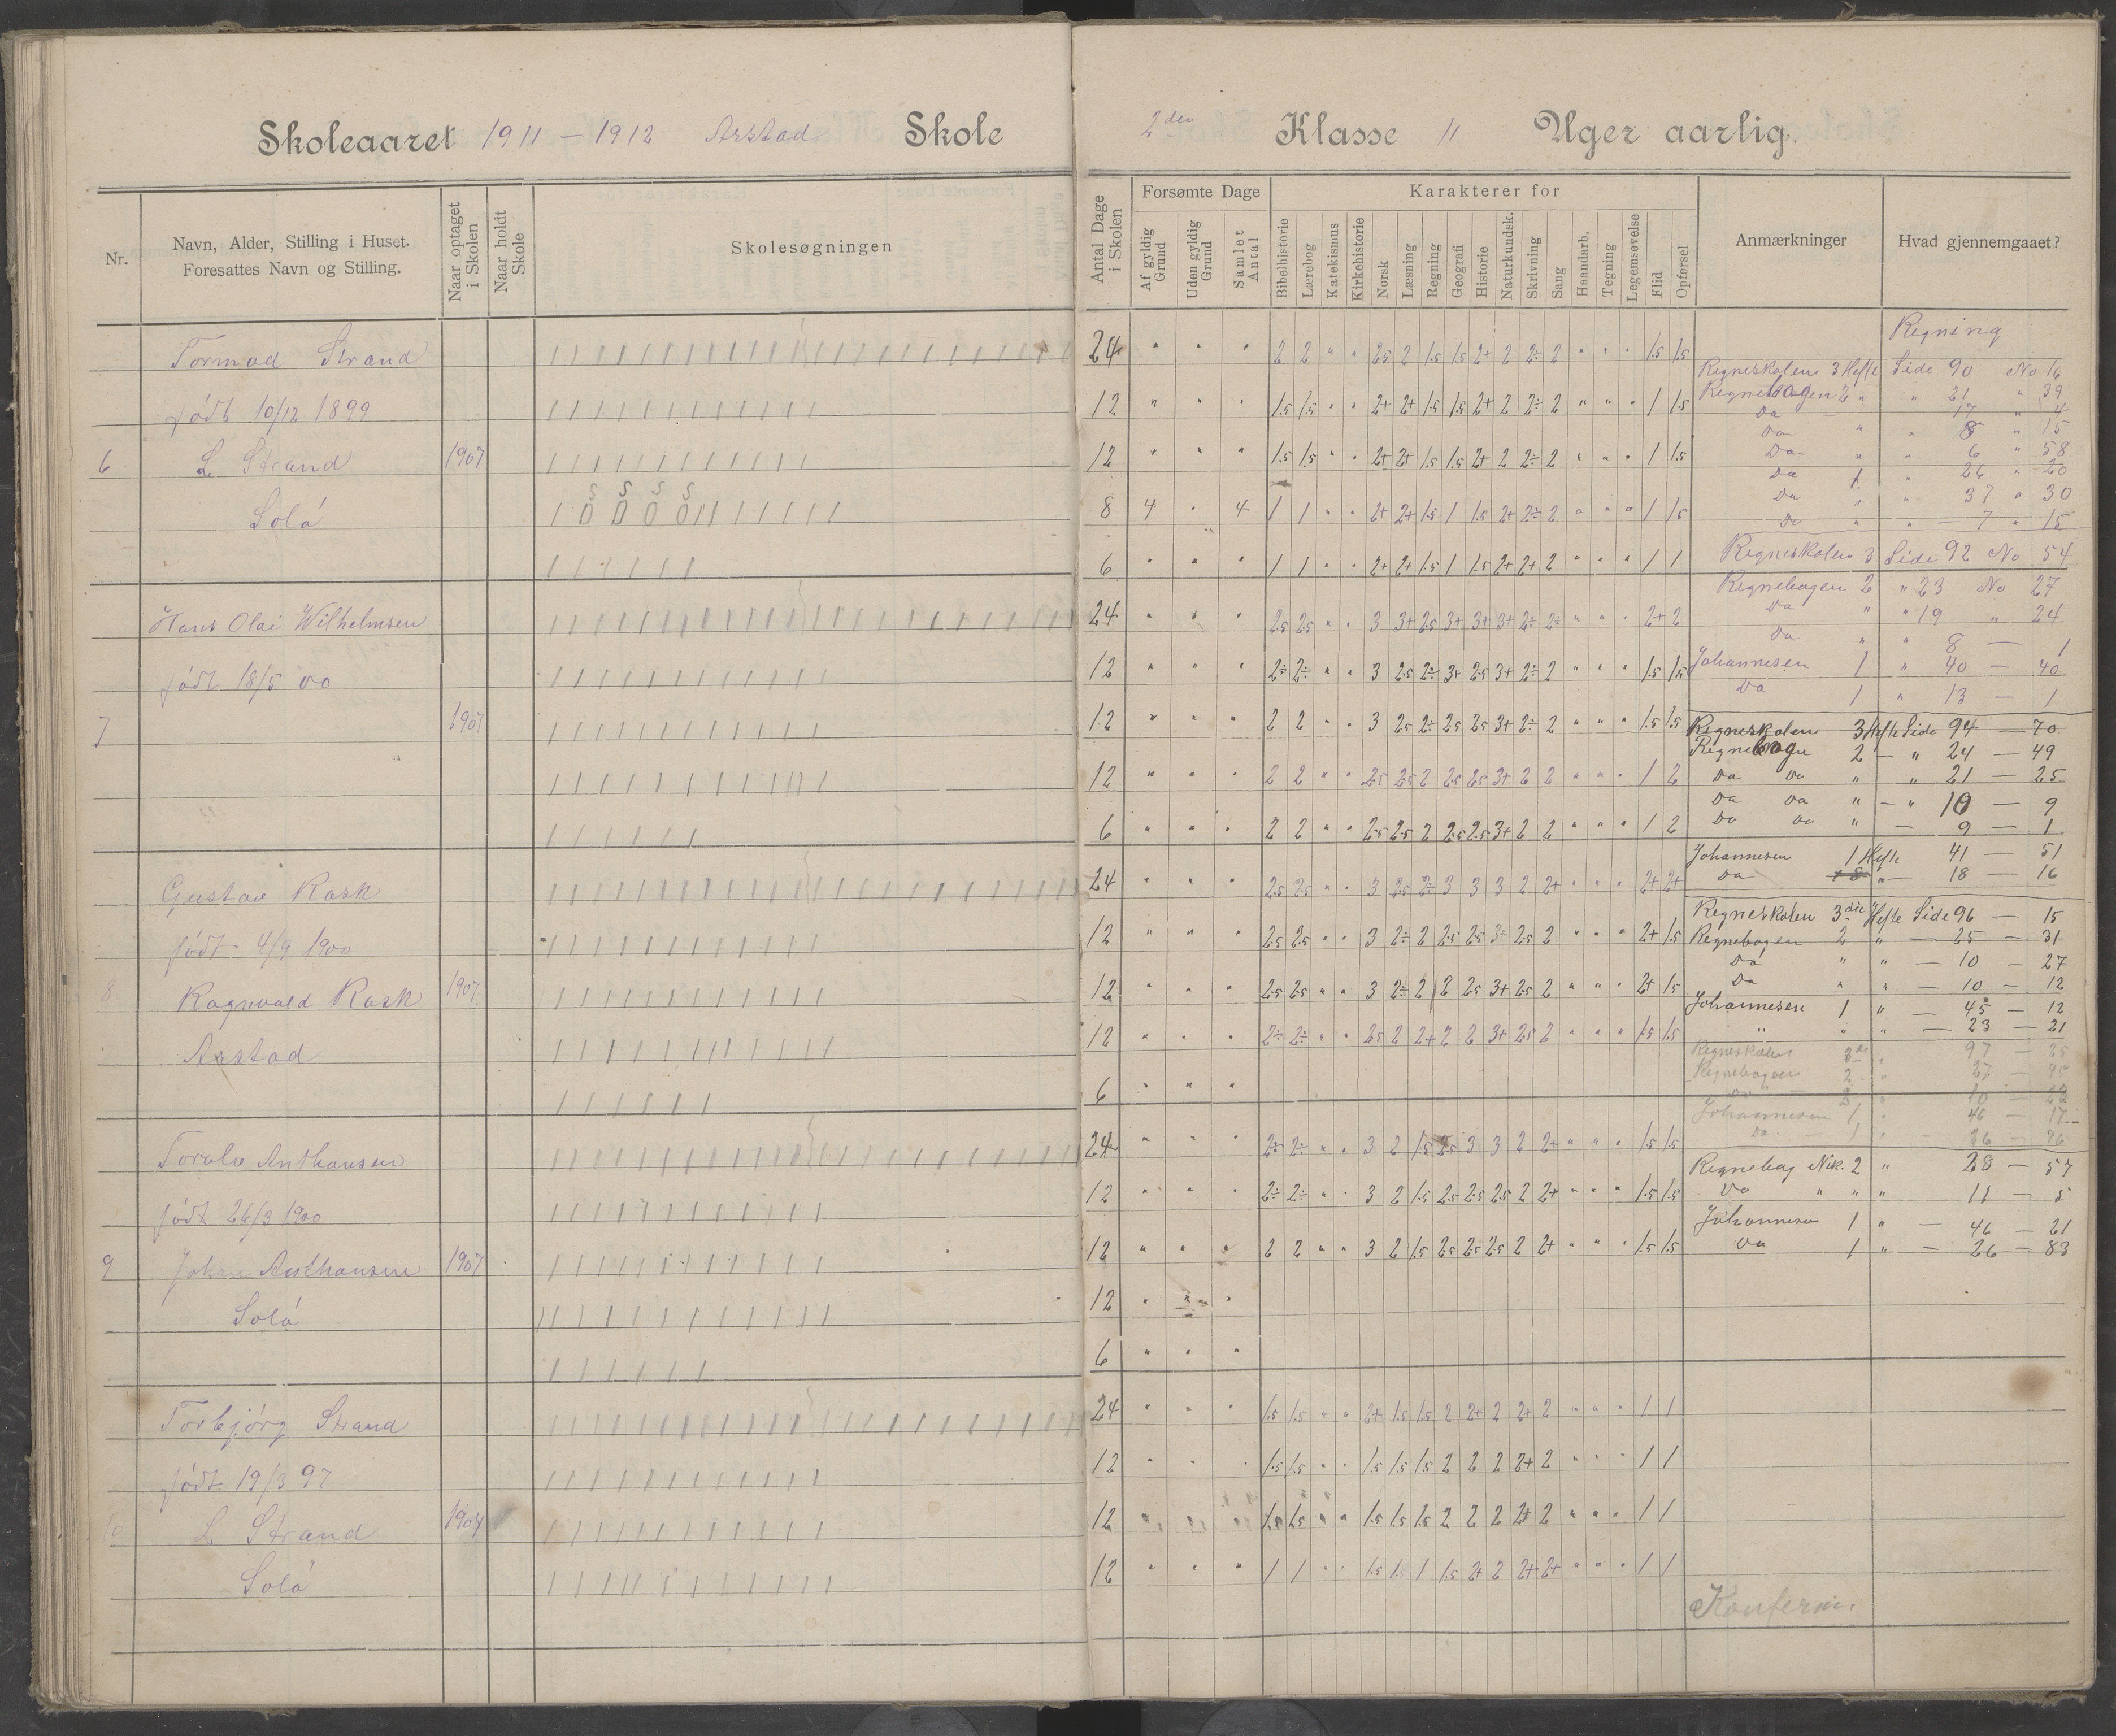 Skoleaaret 1911 – 1912 Arstad Skole
2den Klasse 11 Uger aarlig.
Nr.
Navn, Alder, Stilling i Huset.
Foresattes Navn og Stilling.
Naar optaget i Skolen
Naar holdt Skole
Skolesøgningen
Antal Dage i Skolen
Forsømte Dage
Af gyldig Grund
Uden gyldig Grund
Samlet Antal
Karakterer for
Bibelhistorie
Lærebog
Katekismus
Kirkehistorie
Norsk
Læsning
Regning
Geografi
Historie
Naturkundsk.
Skrivning
Sang
Haandarb.
Tegning
Legemsøvelse
Flid
Opførsel
Anmærkninger
Hvad gjennemgaaet?
Tormod Strand
født 10/12 1899
6 L Strand 1907
Solå
24 " " " 2 2 " " 2.5 2 1.5 1.5 2+ 2 2÷ 2 " " " 1.5 1.5
12 " " " 1.5 1.5 " " 2+ 2+ 1.5 1.5 2+ 2 2÷ 2 " " " 1 1.5
12 " " " 1.5 1.5 " " 2+ 2+ 1.5 1.5 2+ 2 2÷ 2 " " " 1 1.5
8 4 " 4 1 1 " " 2+ 2+ 1.5 1 1.5 2+ 2÷ 2 " " " 1 1.5
6 " " " 1 1 " " 2+ 2+ 1.5 1 1.5 2+ 2+ 2 " " " 1 1
Hans Olai Wilhelmsen
født 18/5 00
7 1907
24 " " " 2.5 2.5 " " 3 3+ 2.5 3+ 3+ 3+ 2÷ 2÷ " " " 2+ 2
12 " " " 2÷ 2÷ " " 3 2.5 2÷ 3+ 2.5 3+ 2÷ 2 " " " 1.5 1.5
12 " " " 2 2 " " 3 2.5 2÷ 2.5 2.5 3+ 2÷ 2 " " " 1.5 1.5
12 " " " 2 2 " " 2.5 2.5 2 2.5 2.5 3+ 2 2 " " " 1 2
6 " " " 2 2 " " 2.5 2.5 2 2.5 2.5 3+ 2 2 " " " 1 2
Gustav Rask
født 4/9 1900
8 Ragnvald Rask 1907
Arstad
24 " " " 2.5 2.5 " " 3 2.5 2÷ 3 3 3 2 2+ " " " 2+ 2+
12 " " " 2.5 2.5 " " 3 2÷ 2 2.5 2.5 3+ 2.5 2 " " " 2+ 1.5
12 " " " 2.5 2.5 " " 3 2÷ 2 2 2.5 3+ 2.5 2 " " " 2+ 1.5
12 " " " 2÷ 2÷ " " 2.5 2 2+ 2 2 3+ 2.5 2 " " " 1.5 1.5
6 " " "
Toralv Anthonsen
født 26/3 1900
9 Johan Anthonsen 1907
Solå
24 " " " 2÷ 2÷ " " 3 2 1.5 2.5 3 3 2 2+ " " " 1.5 1.5
12 " " " 2÷ 2÷ " " 3 2 1.5 2.5 2.5 2.5 2 2+ " " " 1.5 1.5
12 " " " 2 2 " " 3 2 1.5 2.5 2.5 2.5 2 2+ " " " 1.5 1.5
12 " " "
6 " " "
Torbjörg Strand
født 19/3 97
10 L Strand 1904
Solå
24 " " " 1.5 1.5 " " 2+ 1.5 1.5 2 2+ 2 2+ 2 " " " 1 1
12 " " " 1.5 1.5 " " 1.5 1.5 1.5 2 2 2 2+ 2 " " " 1 1
12 " " " 1.5 1.5 " " 1.5 1.5 1.5 2 2 2 2+ 2 " " " 1 1
12 " " " 1 1 " " 1.5 1.5 1 1.5 2+ 2 2+ 2+ " " " 1 1
Regning
Regneskolen 3 Hefte Side 90 No 16
Regnebogen 2 " " 21 " 39
Da 17 " 4
Da " " 8 " 15
Da " " 6 " 58
Da 1 " 26 " 20
Da " " 37 " 30
Da " " 7 " 15
Regneskolen 3 Side 92 No 54
Regnebogen 2 " 23 No 27
Da " " 19 " 24
Da " " 8 — 1
Johannesen 1 " 40 — 40
Da 1 " 13 — 1
Regneskolen 3 Hefte Side 94 — 70
Regnebogen 2 — " 24 — 49
Da Da " " 21 — 25
Da Da " — " 10 — 9
Da Da " — 9 — 1
Johannesen 1 Hefte 41 — 51
Da " — 18 — 16
Regneskolen 3die Hefte Side 96 — 15
Regnebogen 2 " — 25 — 31
Da " " — 10 — 27
Da " " — 10 — 12
Johannesen 1 " — 45 — 12
" " " — 23 — 21
Regneskolen 3de " 97 — 25
Regnebogen 2 " 27 — 45
Johannesen 1 " 46 — 17
Da 1 " 26 — 76
Regnebog Nik. 2 " 28 — 57
Da " " " 11 — 5
Johannesen 1 " — 46 — 21
Da 1 " — 26 — 83